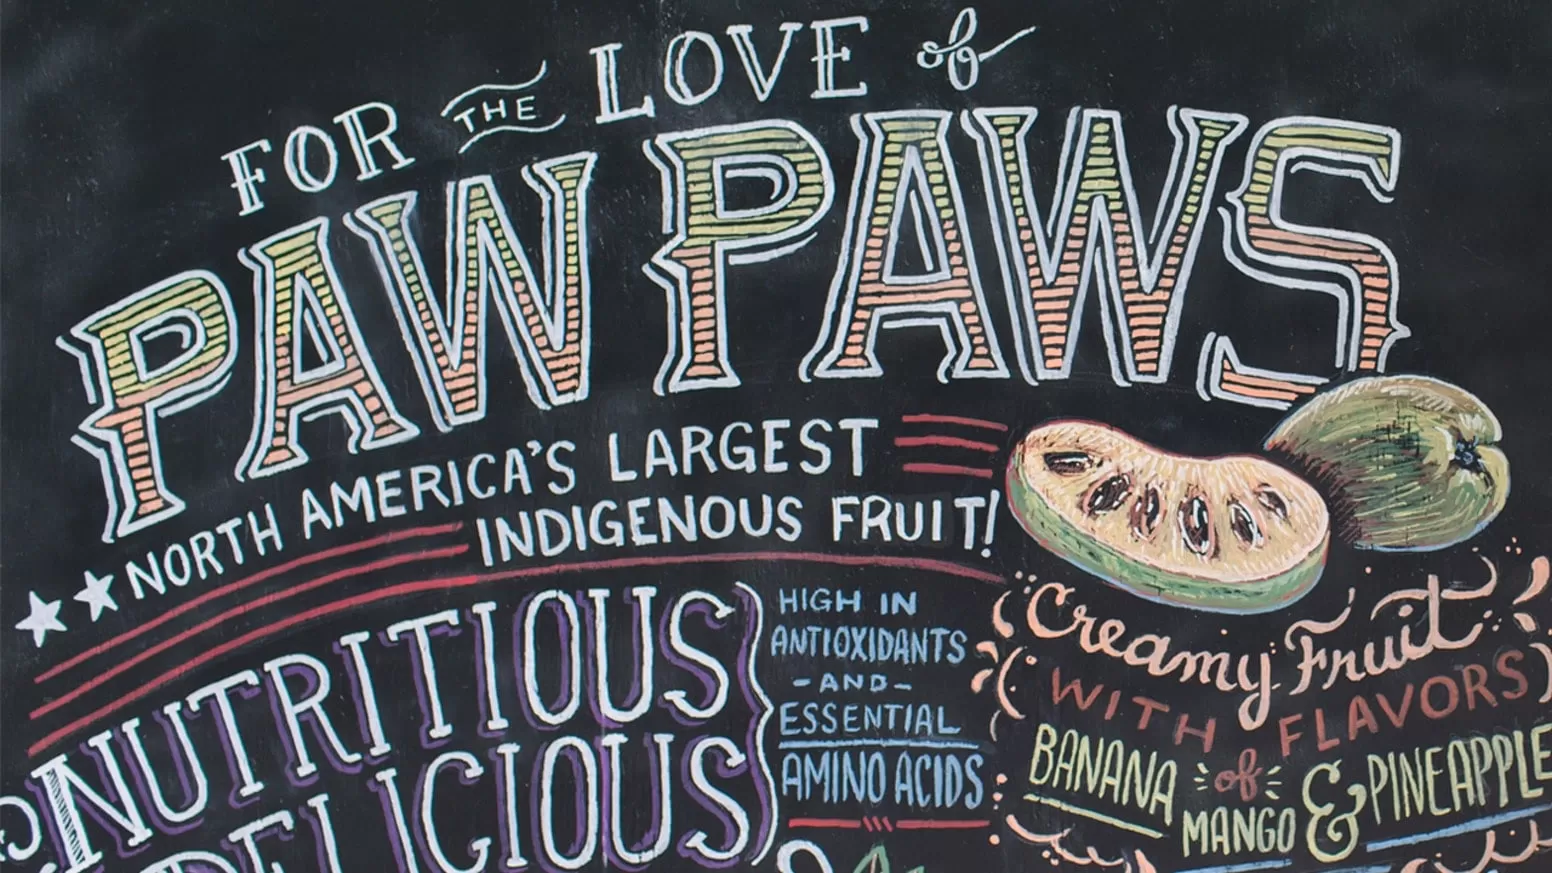 FOR THE LOVE of
PAW PAWS
NORTH AMERICA'S LARGEST
INDIGENOUS FRUIT!
NUTRITIOUS
DELICIOUS
HIGH IN
ANTIOXIDANTS
-AND-
ESSENTIAL
AMINO ACIDS
Creamy Fruit
WITH FLAVORS
of
BANANA
MANGO & PINEAPPLE